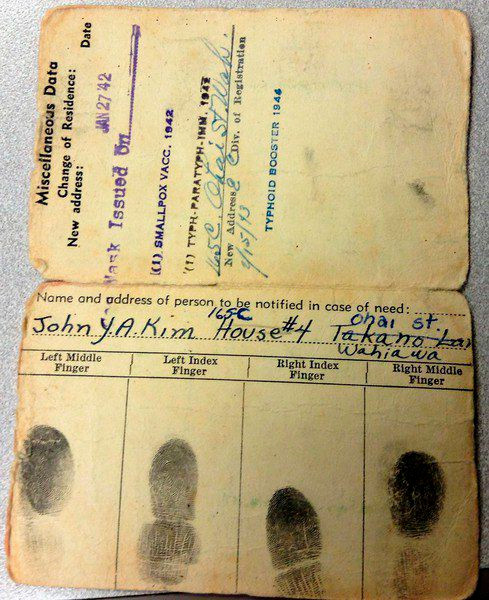 Miscellaneous Data
Change of Residence: Date
New address:
Mask Issued On JAN 27 '42
(1) SMALLPOX VACC. 1942
(1) TYPH-PARATYPH-IMM. 1942
165 C. Ohai St. Wah.
New Address Div. of Registration
9/15/43
TYPHOID BOOSTER 1944
Name and address of person to be notified in case of need:
165-C Ohai St.
John Y.A. Kim House #4 Takano
Wahiawa
Left Middle Finger Left Index Finger Right Index Finger Right Middle Finger